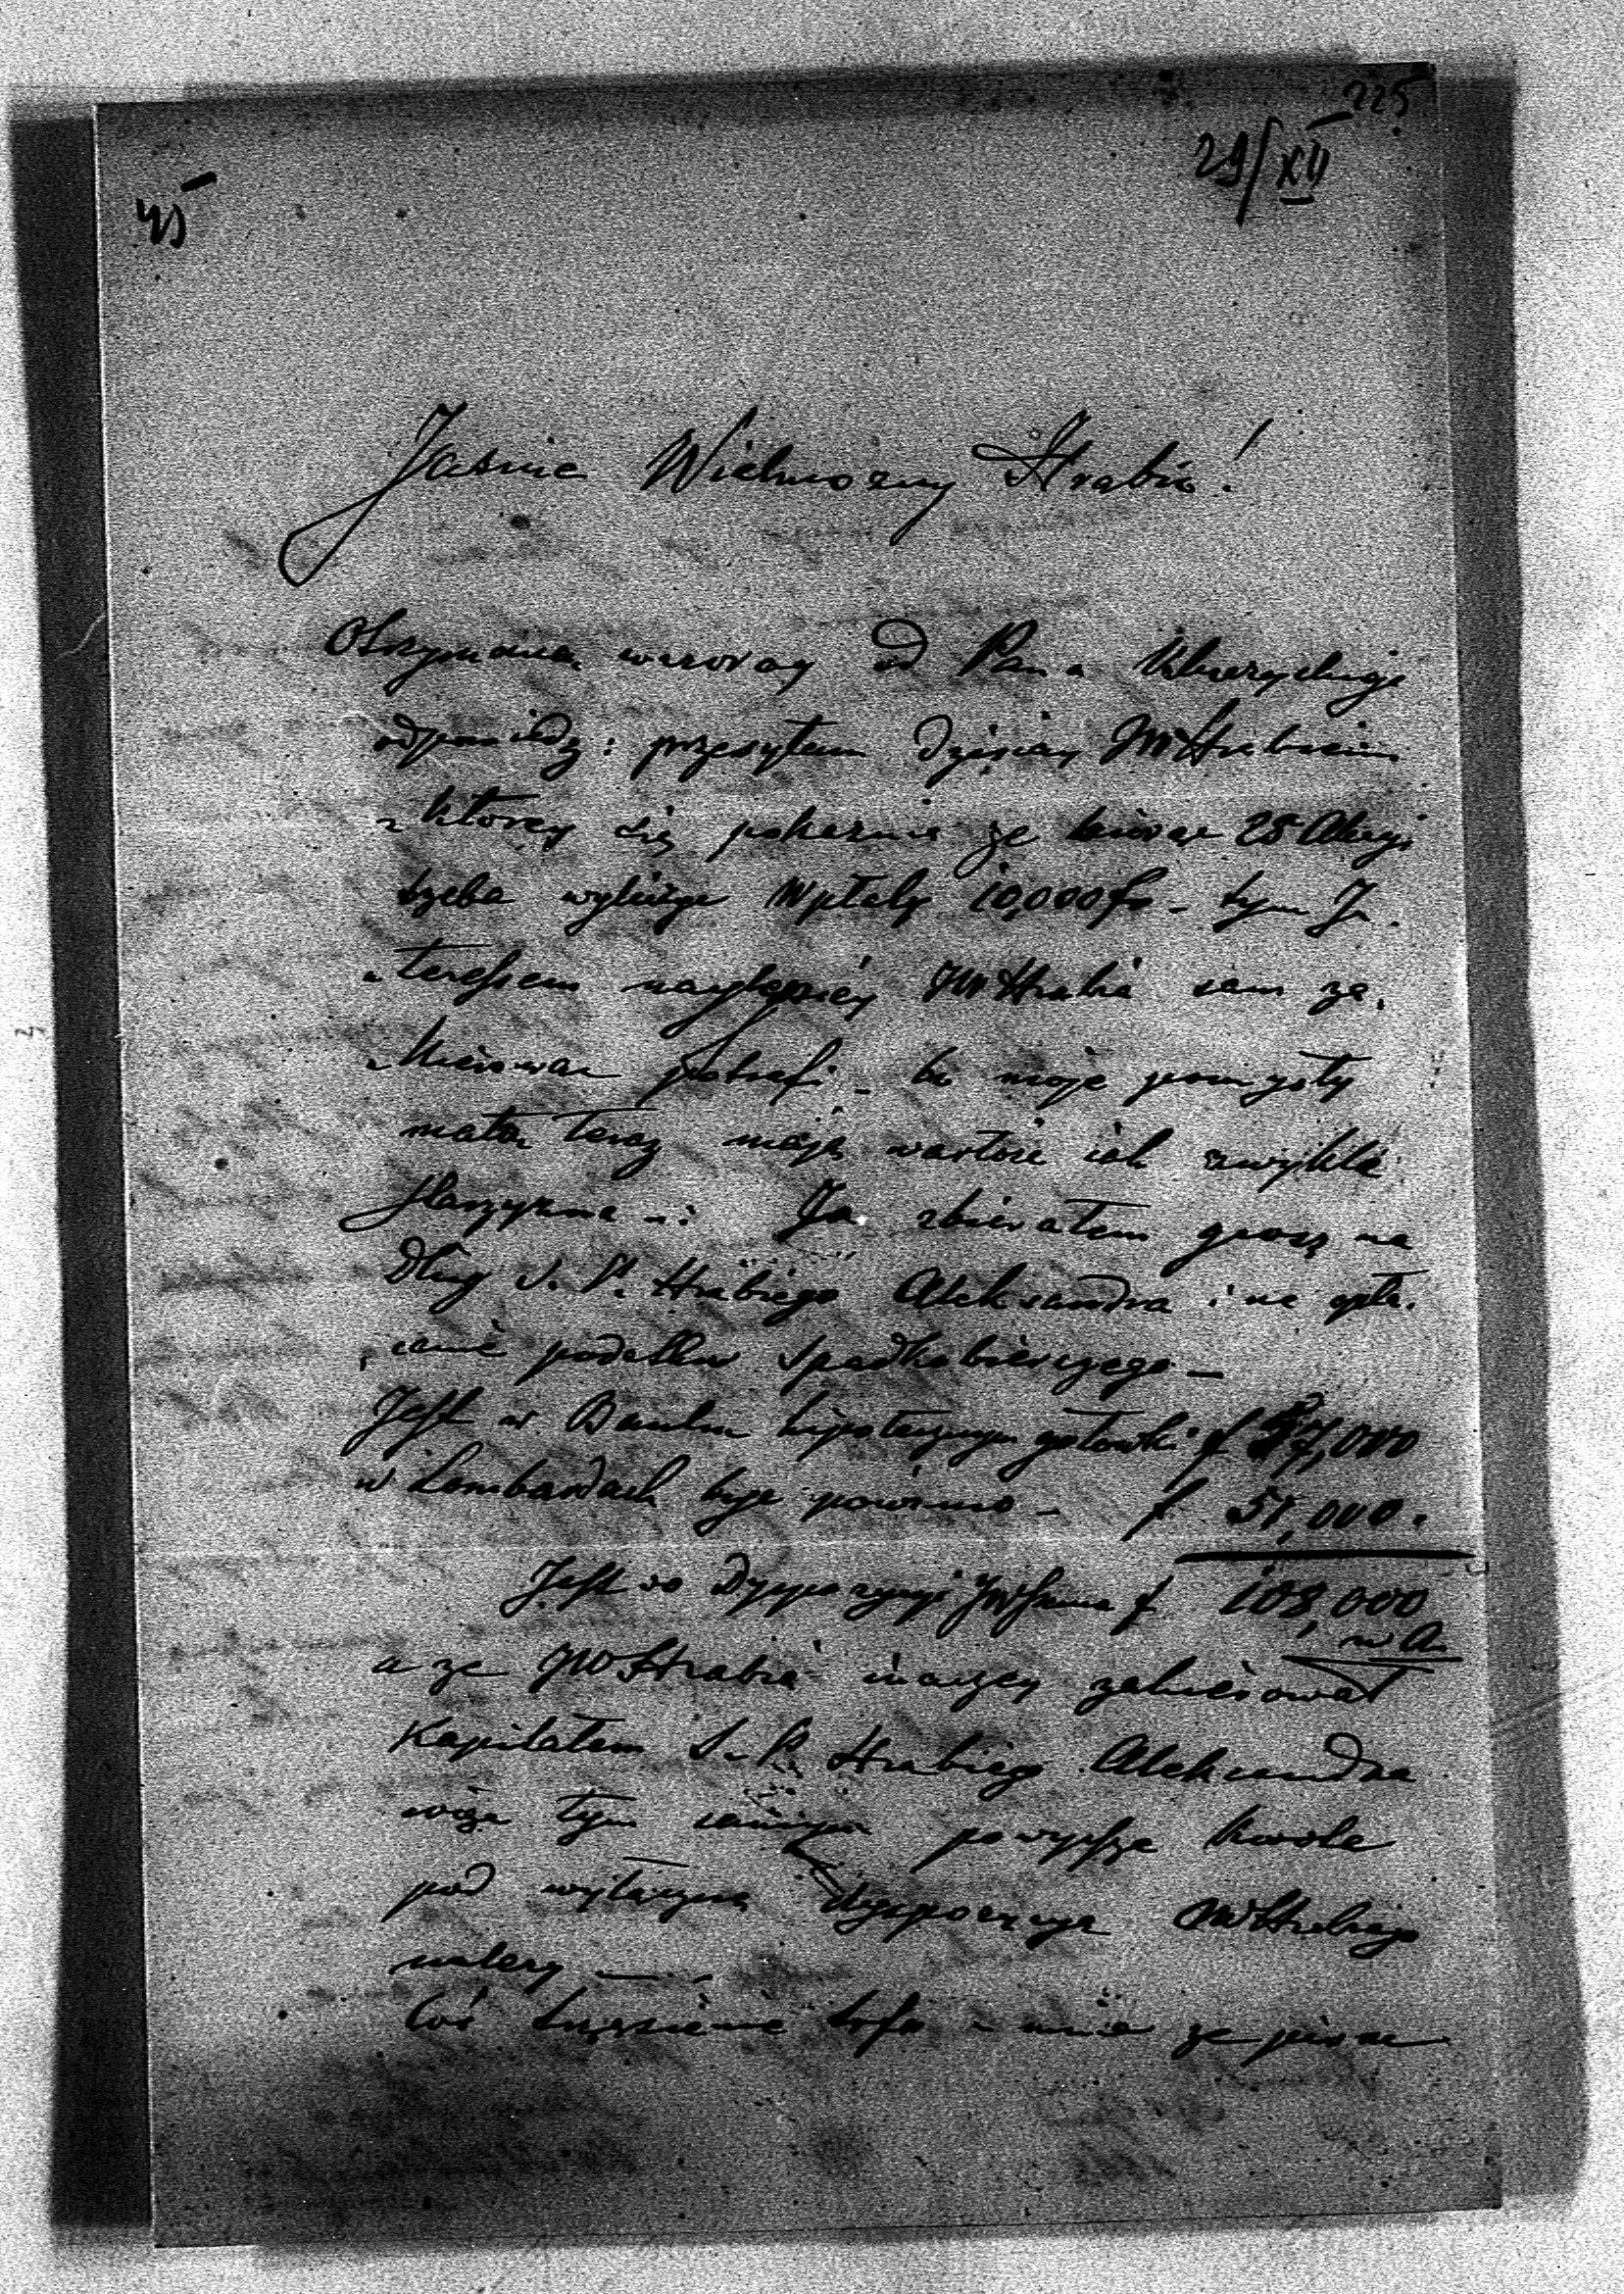 225
29/XII
45
Jaśnie Wielmozny Hrabio!
Otrzymaną wczoray od Pana
odpowiedz: przesyłam dzisiay JWHrabiemu
z ktorey się pokazuie ze biorąc 25 Akcyi
trzeba wyliczyc Wpłaty 10,000 fr - tym In
teressem naylepiey JWHrabia sam za,
kierowac potrafi - bo moje pomysły
mało teraz mają wartosci iak zwykle
Starzyzna -: Ja zbierałem grosz na
Dług S. P. Hrabiego Aleksandra i na opła,
cenie podatku Spadkobierczego -
Jest w Banku hipotecznym gotowki f 57,000
w Lombardach byc powinno - f 51,000.
Jest do Dyspozycyi JWPana f 108,000
w A.
a ze JWHrabia inaczey zakierował
Kapitałem S. P. Hrabiego Aleksandra
więc tym samym powyższa kwota
pod wyłączną dyspozycyą JWHrabiego
nalezy -
Cos z mia ze pisze